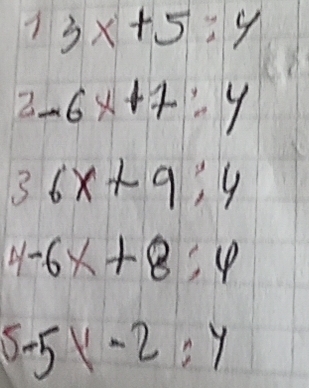 1 3x+5=y
2 -6x+7=y
3 6x+9=y
4 -6x+8=y
5 -5x-2=y